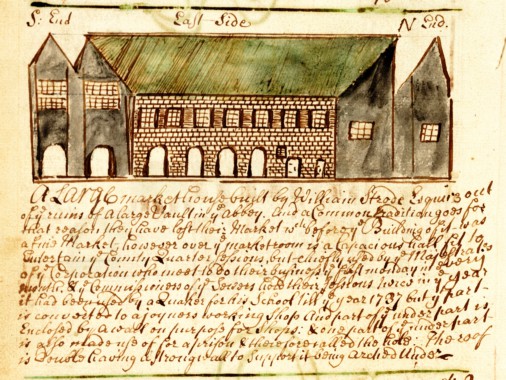 S: End East Side N End.
A Large market house built by William Strode Esquire out
of ye ruins of a large Vault in ye Abbey. And a Common tradition goes for
that reason they have lost their Market wch before ye Building of it was
a fine Market, however over ye market room is a Capacious hall fit to
Entertain ye County Quarter Sessions, but chiefly used by ye Magistrates
of ye Corporation who meet to do their business ye last monday in every
month, & ye Commissioners of ye Sewers had their Sessions here in ye year
it had been used by a Quaker for his School till ye year 1737 but ye part
is converted to a joyners working Shop and part of ye under part is
Enclosed by a wall on purpose for Shops: & one part of ye under part
is also made use of for a prison & therefore called the The roof
is double having a strong wall to Support it being Arched Under